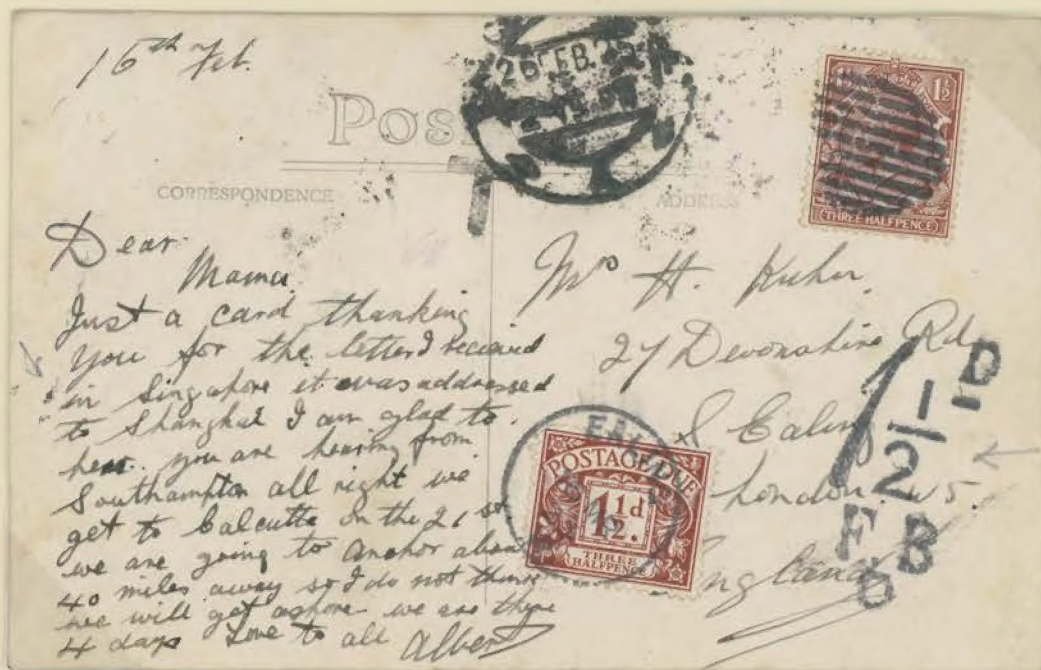 16th Feb.
26 FEB. 2
Pos
CORRESPONDENCE
ADDRESS
1½
THREE HALFPENCE
Dear
Mama
Just a card thanking
you for the letter I recieved
in Singapore it was addressed
to Shanghai I am glad to
hear you are hearing from
Southampton all right we
get to Calcutta on the 21 so
we are going to anchor about
40 miles away so I do not think
we will get ashore we are there
4 days Love to all Albert
Mrs H.
27 Devonshire Rd
S Ealing
London W5.
England
T
1½ D
F.B
O
EALING
POSTAGE DUE
1½d.
THREE
HALFPENCE